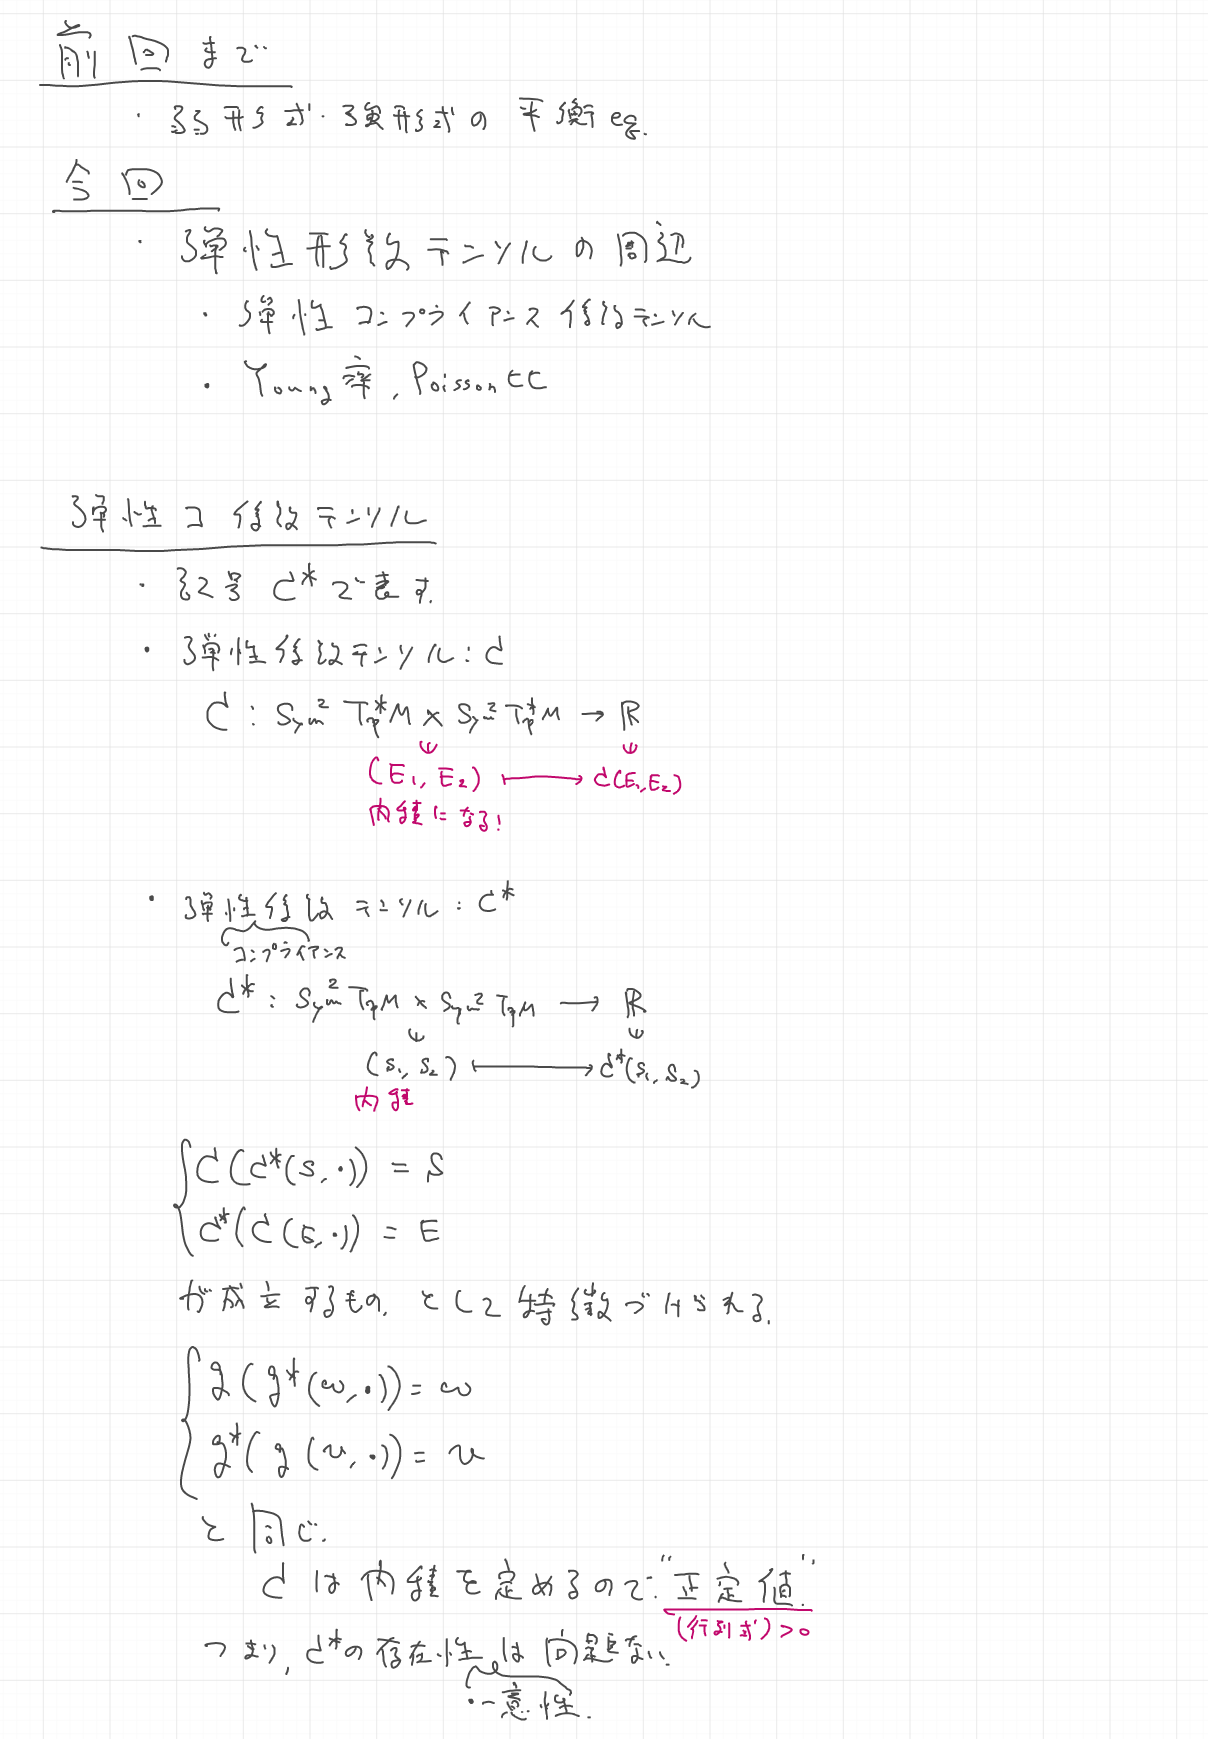 前回まで
・弱形式・強形式の平衡eq.
今回
・弾性形数テンソルの周辺
・弾性コンプライアンス係数テンソル
・Young率, Poisson比
弾性コ係数テンソル
・記号 C* で表す.
・弾性係数テンソル : C
C : Sym² Tp*M × Sym² Tp*M → ℝ
(E₁, E₂) ⟼ C(E₁, E₂)
内積になる!
・弾性係数テンソル : C*
コンプライアンス
C* : Sym² TpM × Sym² TpM → ℝ
(S₁, S₂) ⟼ C*(S₁, S₂)
内積
C(C*(S, ・)) = S
C*(C(E, ・)) = E
が成立するもの, として特徴づけられる.
g(g*(ω, ・)) = ω
g*(g(v, ・)) = v
と同じ.
Cは内積を定めるので "正定値".
(行列式) > 0
つまり, C*の存在性は問題ない.
・一意性.